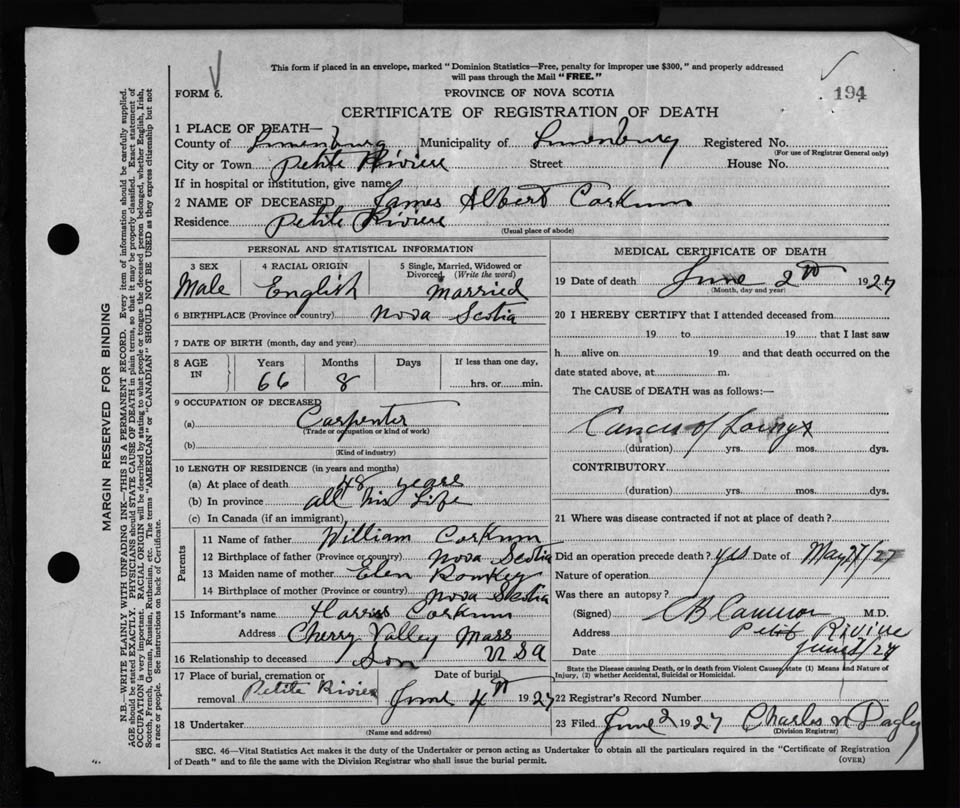 This form if placed in an envelope, marked "Dominion Statistics—Free, penalty for improper use $300," and properly addressed
will pass through the Mail "FREE."
194
FORM 6.
PROVINCE OF NOVA SCOTIA
CERTIFICATE OF REGISTRATION OF DEATH
1 PLACE OF DEATH—
County of Lunenburg Municipality of Lunenburg Registered No.
(For use of Registrar General only)
City or Town Petite Riviere Street House No.
If in hospital or institution, give name
2 NAME OF DECEASED James Albert Corkum
Residence Petite Riviere
(Usual place of abode)
PERSONAL AND STATISTICAL INFORMATION
3 SEX 4 RACIAL ORIGIN 5 Single, Married, Widowed or Divorced (Write the word)
Male English Married
6 BIRTHPLACE (Province or country) Nova Scotia
7 DATE OF BIRTH (month, day and year)
8 AGE IN Years Months Days If less than one day,
66 8 hrs. or min.
9 OCCUPATION OF DECEASED
(a) Carpenter
(Trade or occupation or kind of work)
(b)
(Kind of industry)
10 LENGTH OF RESIDENCE (in years and months)
(a) At place of death 48 years
(b) In province all his Life
(c) In Canada (if an immigrant)
Parents
11 Name of father William Corkum
12 Birthplace of father (Province or country) Nova Scotia
13 Maiden name of mother Elen
14 Birthplace of mother (Province or country) Nova Scotia
15 Informant's name Harris Corkum
Address Cherry Valley Mass
USA
16 Relationship to deceased Son
17 Place of burial, cremation or removal Petite Riviere Date of burial June 4th 1927
18 Undertaker
(Name and address)
MEDICAL CERTIFICATE OF DEATH
19 Date of death June 2nd 1927
(Month, day and year)
20 I HEREBY CERTIFY that I attended deceased from
19 to 19 that I last saw
h alive on 19 and that death occurred on the
date stated above, at m.
The CAUSE of DEATH was as follows:—
Cancer of
(duration) yrs. mos. dys.
CONTRIBUTORY
(duration) yrs. mos. dys.
21 Where was disease contracted if not at place of death?
Did an operation precede death? yes Date of May 27/27
Nature of operation
Was there an autopsy?
(Signed) M.D.
Address Petite Riviere
Date June 2/27
State the Disease causing Death, or in death from Violent Causes, state (1) Means and Nature of
Injury, (2) whether Accidental, Suicidal or Homicidal.
22 Registrar's Record Number
23 Filed June 2 1927 Charles
(Division Registrar)
SEC. 46—Vital Statistics Act makes it the duty of the Undertaker or person acting as Undertaker to obtain all the particulars required in the "Certificate of Registration
of Death" and to file the same with the Division Registrar who shall issue the burial permit.
(OVER)
MARGIN RESERVED FOR BINDING
N.B.—WRITE PLAINLY WITH UNFADING INK—THIS IS A PERMANENT RECORD. Every item of information should be carefully supplied.
AGE should be stated EXACTLY. PHYSICIANS should STATE CAUSE OF DEATH in plain terms, so that it may be properly classified. Exact statement of
OCCUPATION is very important. RACIAL ORIGIN will be described by stating to what people or tongue the deceased person belonged, whether English, Irish,
Scotch, French, German, Russian, Ruthenian, etc. The terms "AMERICAN" or "CANADIAN" SHOULD NOT BE USED as they express citizenship but not
a race or people. See instructions on back of Certificate.